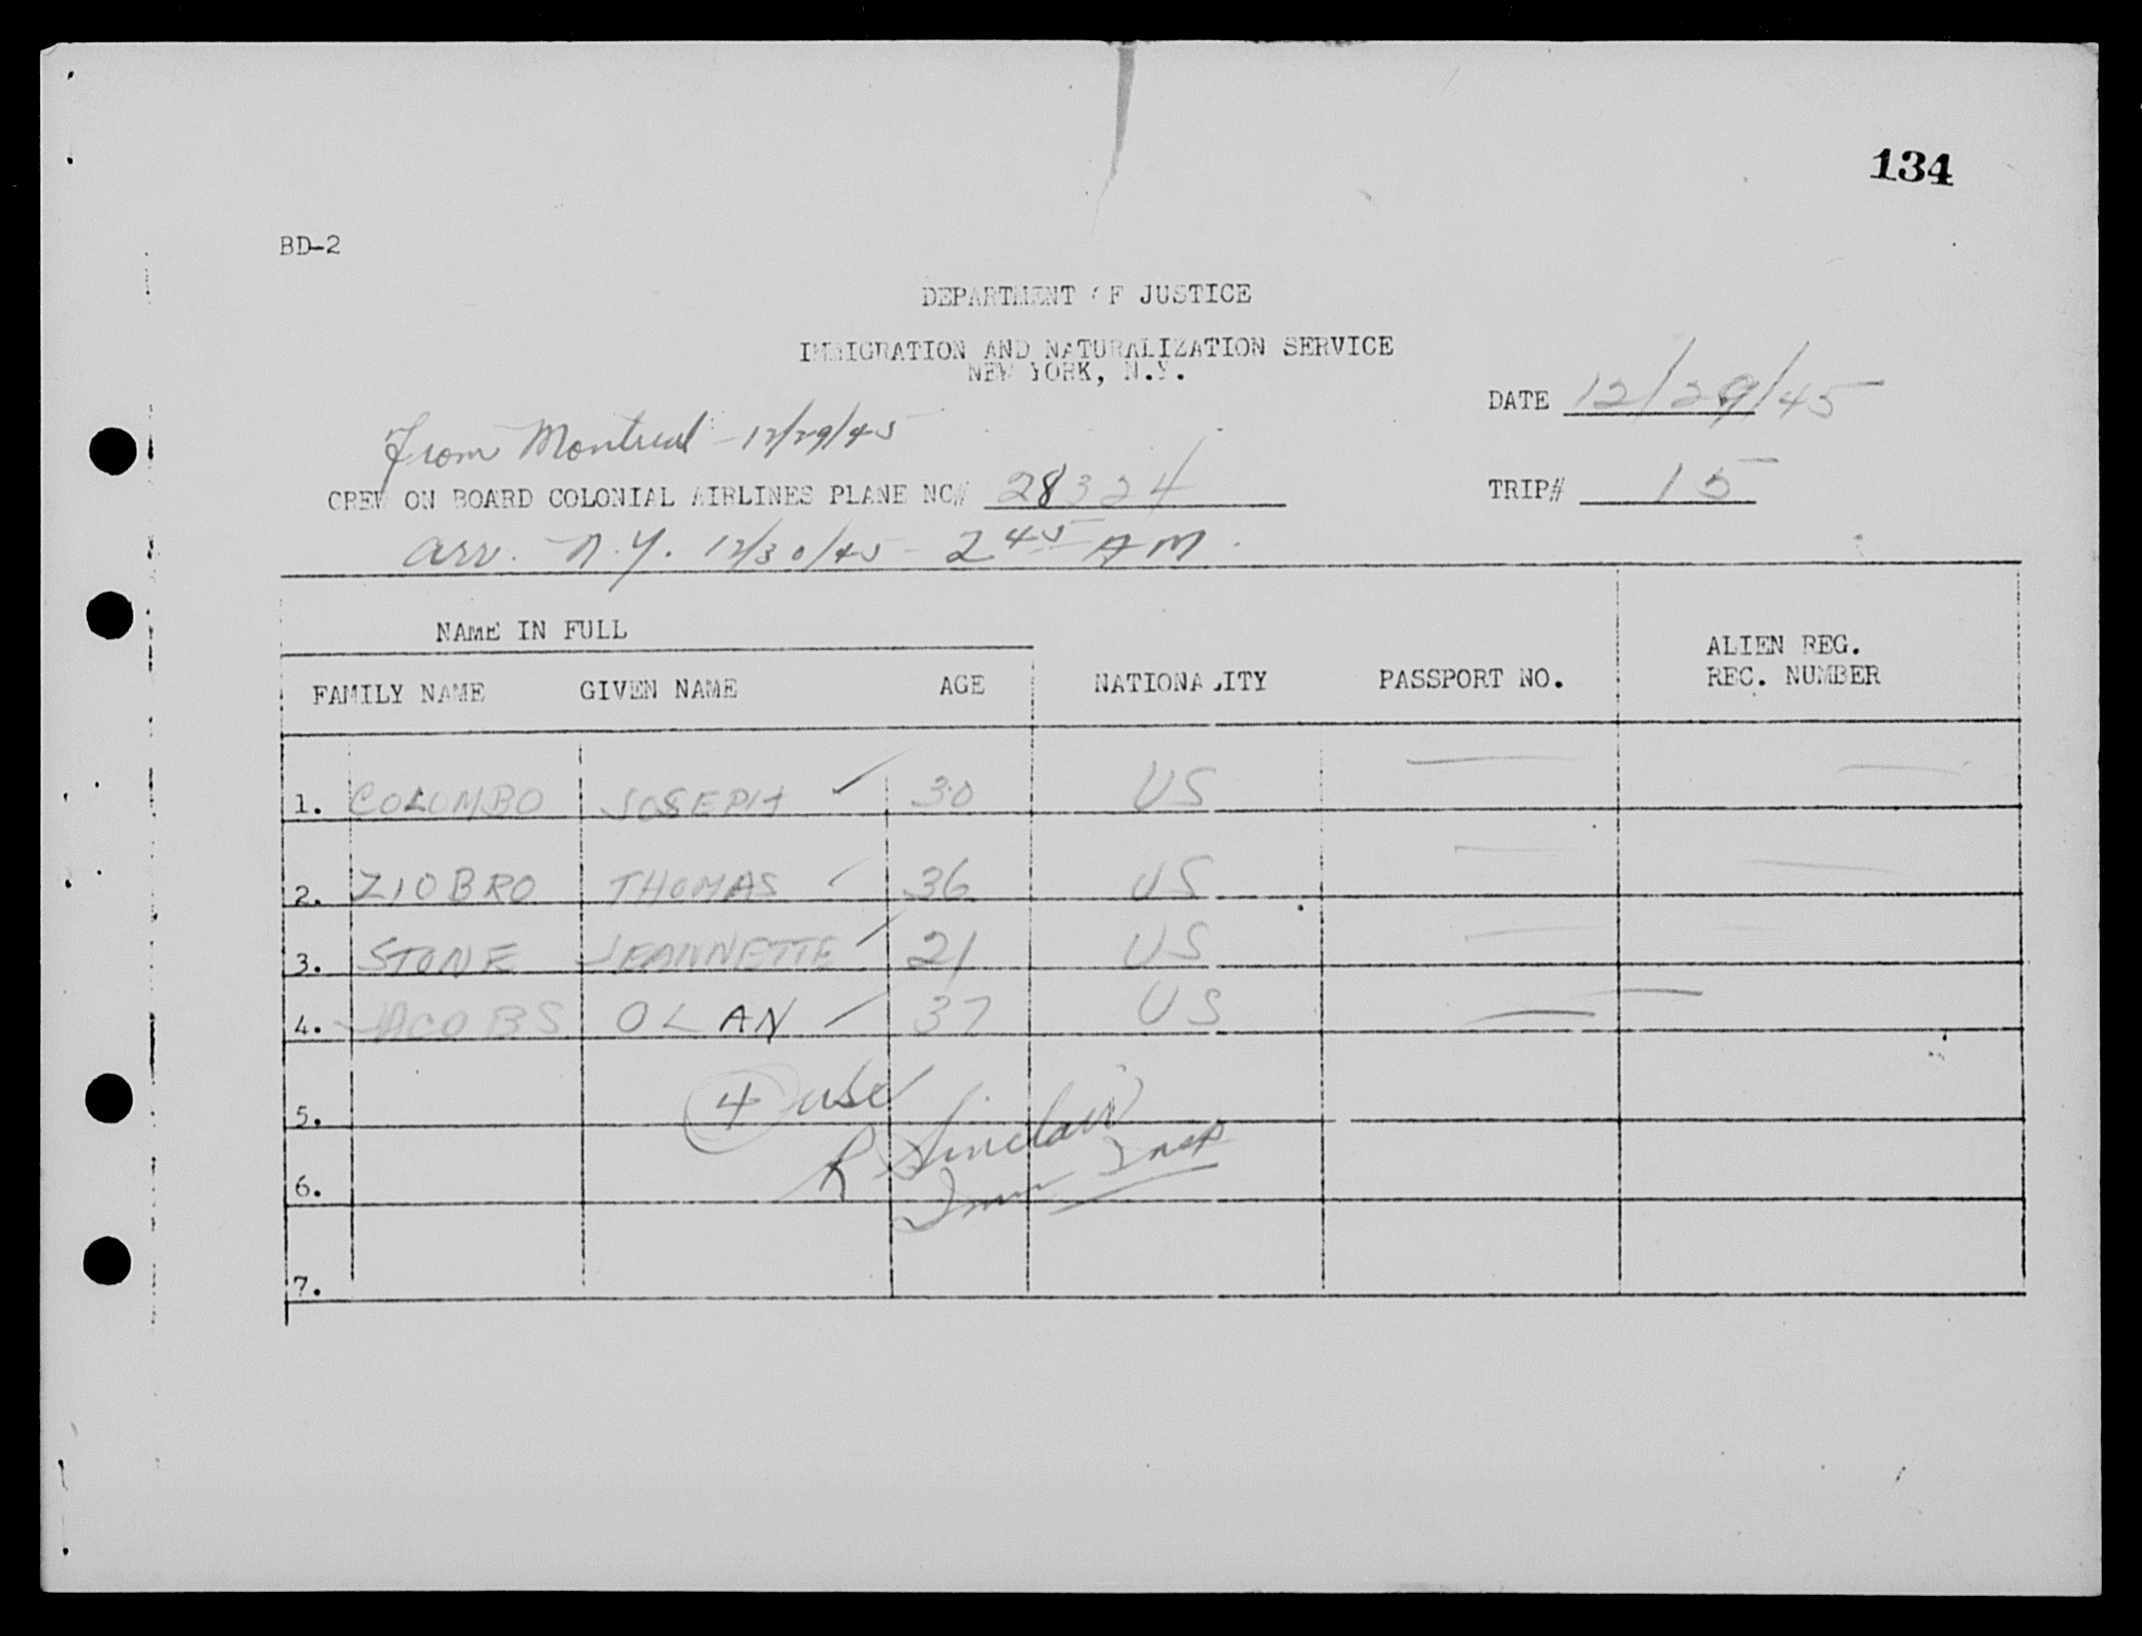 134
BD-2
DEPARTMENT OF JUSTICE
IMMIGRATION AND NATURALIZATION SERVICE
NEW YORK, N.Y.
DATE 12/29/45
From Montreal - 12/29/45
CREW ON BOARD COLONIAL AIRLINES PLANE NC# 28324
TRIP# 15
arr. N.Y. 12/30/45 - 2 45 AM.
NAME IN FULL
FAMILY NAME GIVEN NAME AGE NATIONALITY PASSPORT NO. ALIEN REG.
REC. NUMBER
1. COLOMBO JOSEPH ✓ 30 US — —
2. ZIOBRO THOMAS ✓ 36 US — —
3. STONE JEANNETTE ✓ 21 US — —
4. JACOBS OLAN ✓ 37 US — —
5. 4 USC
R Sinclair
6. Imm Insp
7.